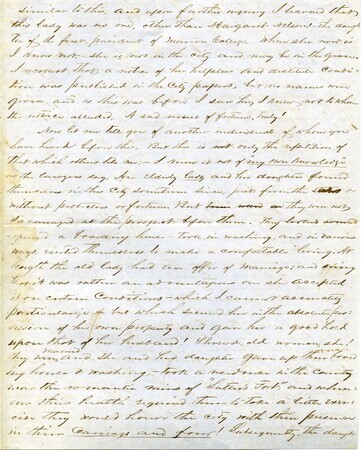 similar to this, and upon further inquiry I learned that
this lady was no one, other than Margaret Nelson! the daugh-
ter of the first president of Marion College. Where she now is
I know not. she is not in the city and may be in the grave.
I recollect that a notice of her helpless and destitute condi-
tion was published in the City papers, but no names were
given and as this was before I saw her, I knew not to whom
the notice alluded. A sad news of fortune, truly!
Now let me tell you of another individual of whom you
have heard before this. But she is not only the repetition of
that which others tell me. I know it is of my own knowledge
as the lawyers say. An elderly lady and her daughter found
themselves in the City sometime since, just from the
without protection or fortune. But they were not
discouraged at the prospect before them. They
opened a boarding house, took in washing, and in various
ways exerted themselves to make a comfortable living. At
length the old lady had an offer of marriage, and
that it was rather an advantageous one she accepted
it on certain conditions - which I cannot accurately
particularize - but which secured her the absolute pos-
session of his own property and gave her a good hold
upon that of her husband! Shrewd old woman, she!
They married and she and her daughter gave up their board-
ing house & washing - took a residence in the country
near the romantic ruins of and when
ever their health required them to take a little exer-
cise they would honor the city with their presence
in their carriage and four! Subsequently, the daugh-